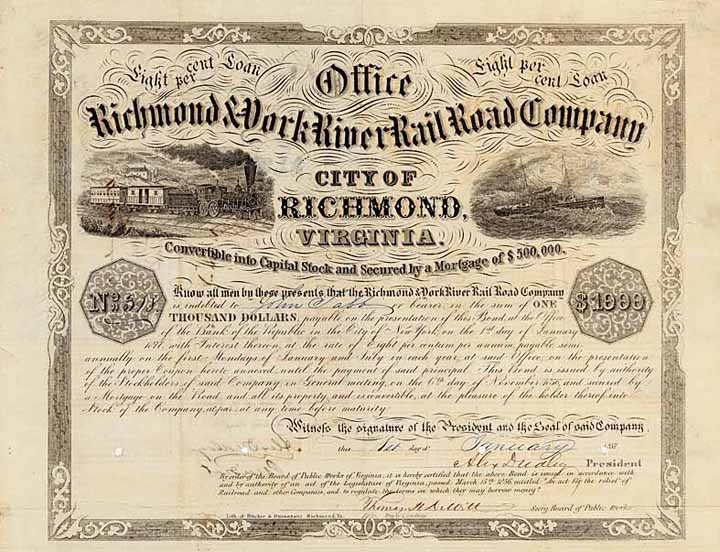 Eight per cent Loan
Eight per cent Loan
Office
Richmond & York River Rail Road Company
CITY OF
RICHMOND,
VIRGINIA.
Convertible into Capital Stock and Secured by a Mortgage of $500,000.
No 518
$1000
Know all men by these presents that the Richmond & York River Rail Road Company
is indebted to John Tabb or bearer in the sum of ONE
THOUSAND DOLLARS, payable on the presentation of this Bond, at the Office
of the Bank of the Republic in the City of New York, on the 1st day of January
with Interest thereon at the rate of Eight per centum per annum payable semi
annually on the first Mondays of January and July in each year, at said Office, on the presentation
of the proper Coupon hereto annexed until the payment of said principal. This Bond is issued by authority
of the Stockholders of said Company in General meeting, on the 6th day of November and secured by
a Mortgage on the Road and all its property, and is convertible, at the pleasure of the holder thereof into
Stock of the Company, at par, at any time before maturity
Witness the signature of the President and the Seal of said Company,
this 1st day of January
Alex Dudley President
By order of the Board of Public Works of Virginia, it is hereby certified that the above Bond is issued in accordance with
and by authority of an act of the Legislature of Virginia, passed March 15th 1856, entitled "An act for the relief of
Railroad and other Companies, and to regulate the terms on which they may borrow money."
Thomas H DeWitt Secry Board of Public Works
Lith. of Ritchie & Dunnavant Richmond Va.